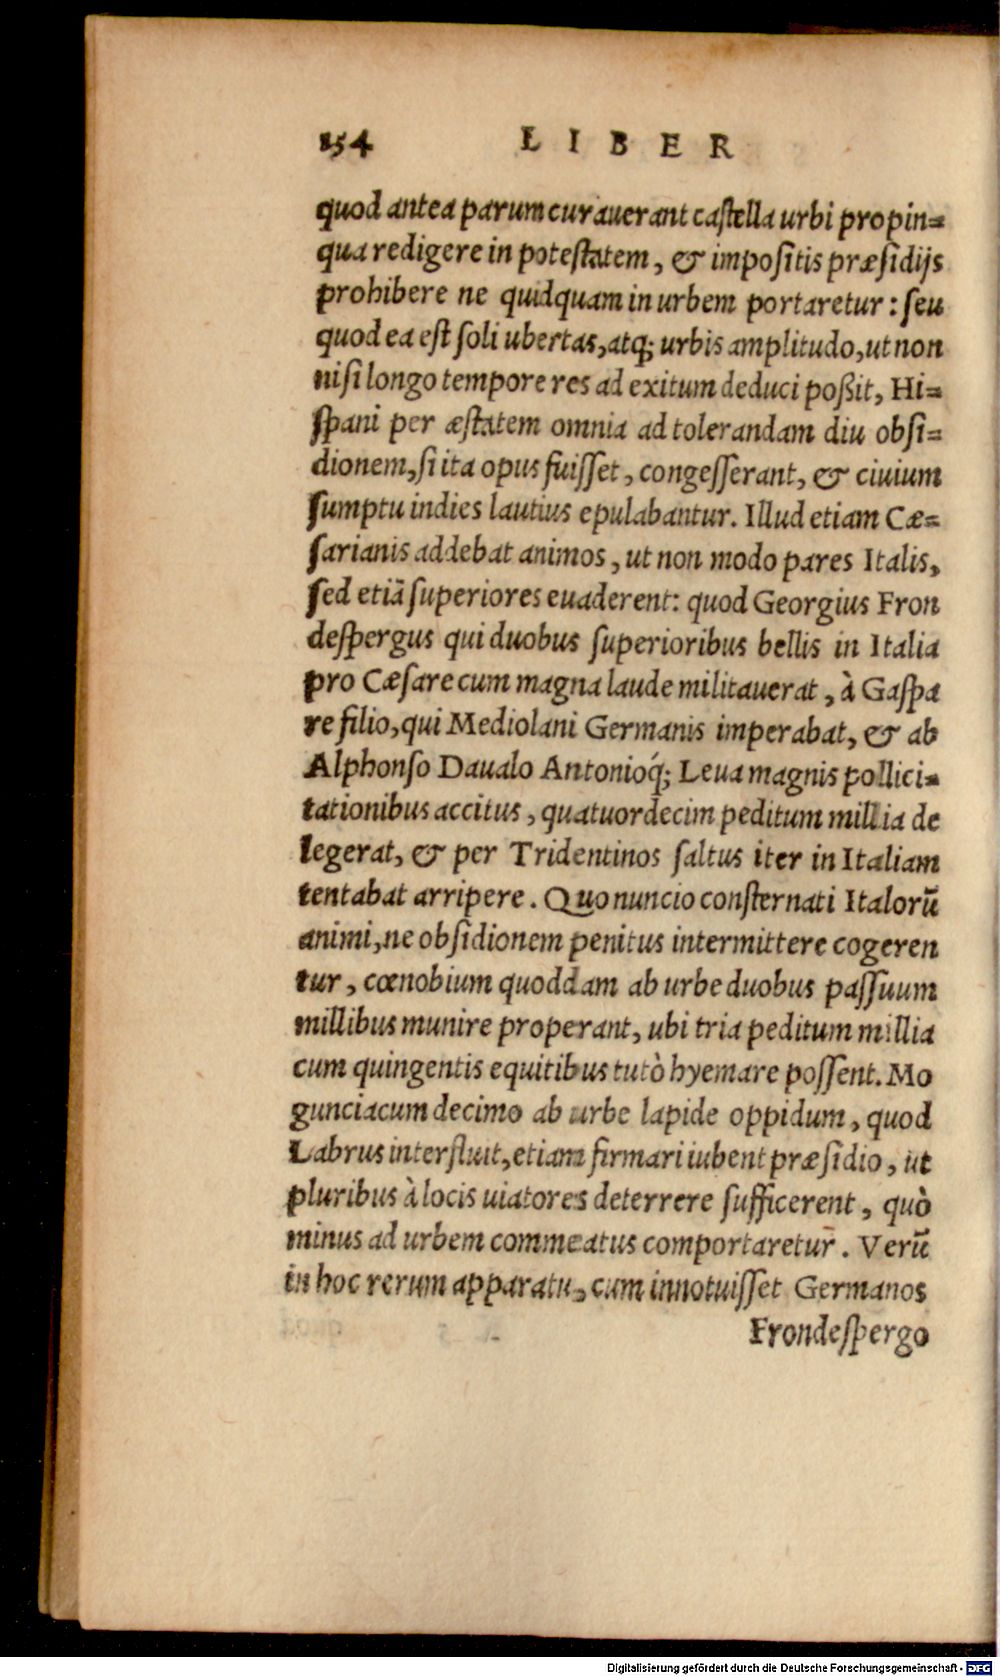 154 LIBER
quod antea parum curauerant castella urbi propin=
qua redigere in potestatem, & impositis præsidijs
prohibere ne quidquam in urbem portaretur: seu
quod ea est soli ubertas, atq; urbis amplitudo, ut non
nisi longo tempore res ad exitum deduci poßit, Hi=
spani per æstatem omnia ad tolerandam diu obsi=
dionem, si ita opus fuisset, congesserant, & ciuium
sumptu indies lautius epulabantur. Illud etiam Cæ=
sarianis addebat animos, ut non modo pares Italis,
sed etiã superiores euaderent: quod Georgius Fron
despergus qui duobus superioribus bellis in Italia
pro Cæsare cum magna laude militauerat, à Gaspa
re filio, qui Mediolani Germanis imperabat, & ab
Alphonso Daualo Antonioq́; Leua magnis pollici=
tationibus accitus, quatuordecim peditum millia de
legerat, & per Tridentinos saltus iter in Italiam
tentabat arripere. Quo nuncio consternati Italorũ
animi, ne obsidionem penitus intermittere cogeren
tur, cœnobium quoddam ab urbe duobus passuum
millibus munire properant, ubi tria peditum millia
cum quingentis equitibus tutò hyemare possent. Mo
gunciacum decimo ab urbe lapide oppidum, quod
Labrus interfluit, etiam firmari iubent præsidio, ut
pluribus à locis uiatores deterrere sufficerent, quò
minus ad urbem commeatus comportaretur. Verũ
in hoc rerum apparatu, cum innotuisset Germanos
Frondespergo
Digitalisierung gefördert durch die Deutsche Forschungsgemeinschaft - DFG